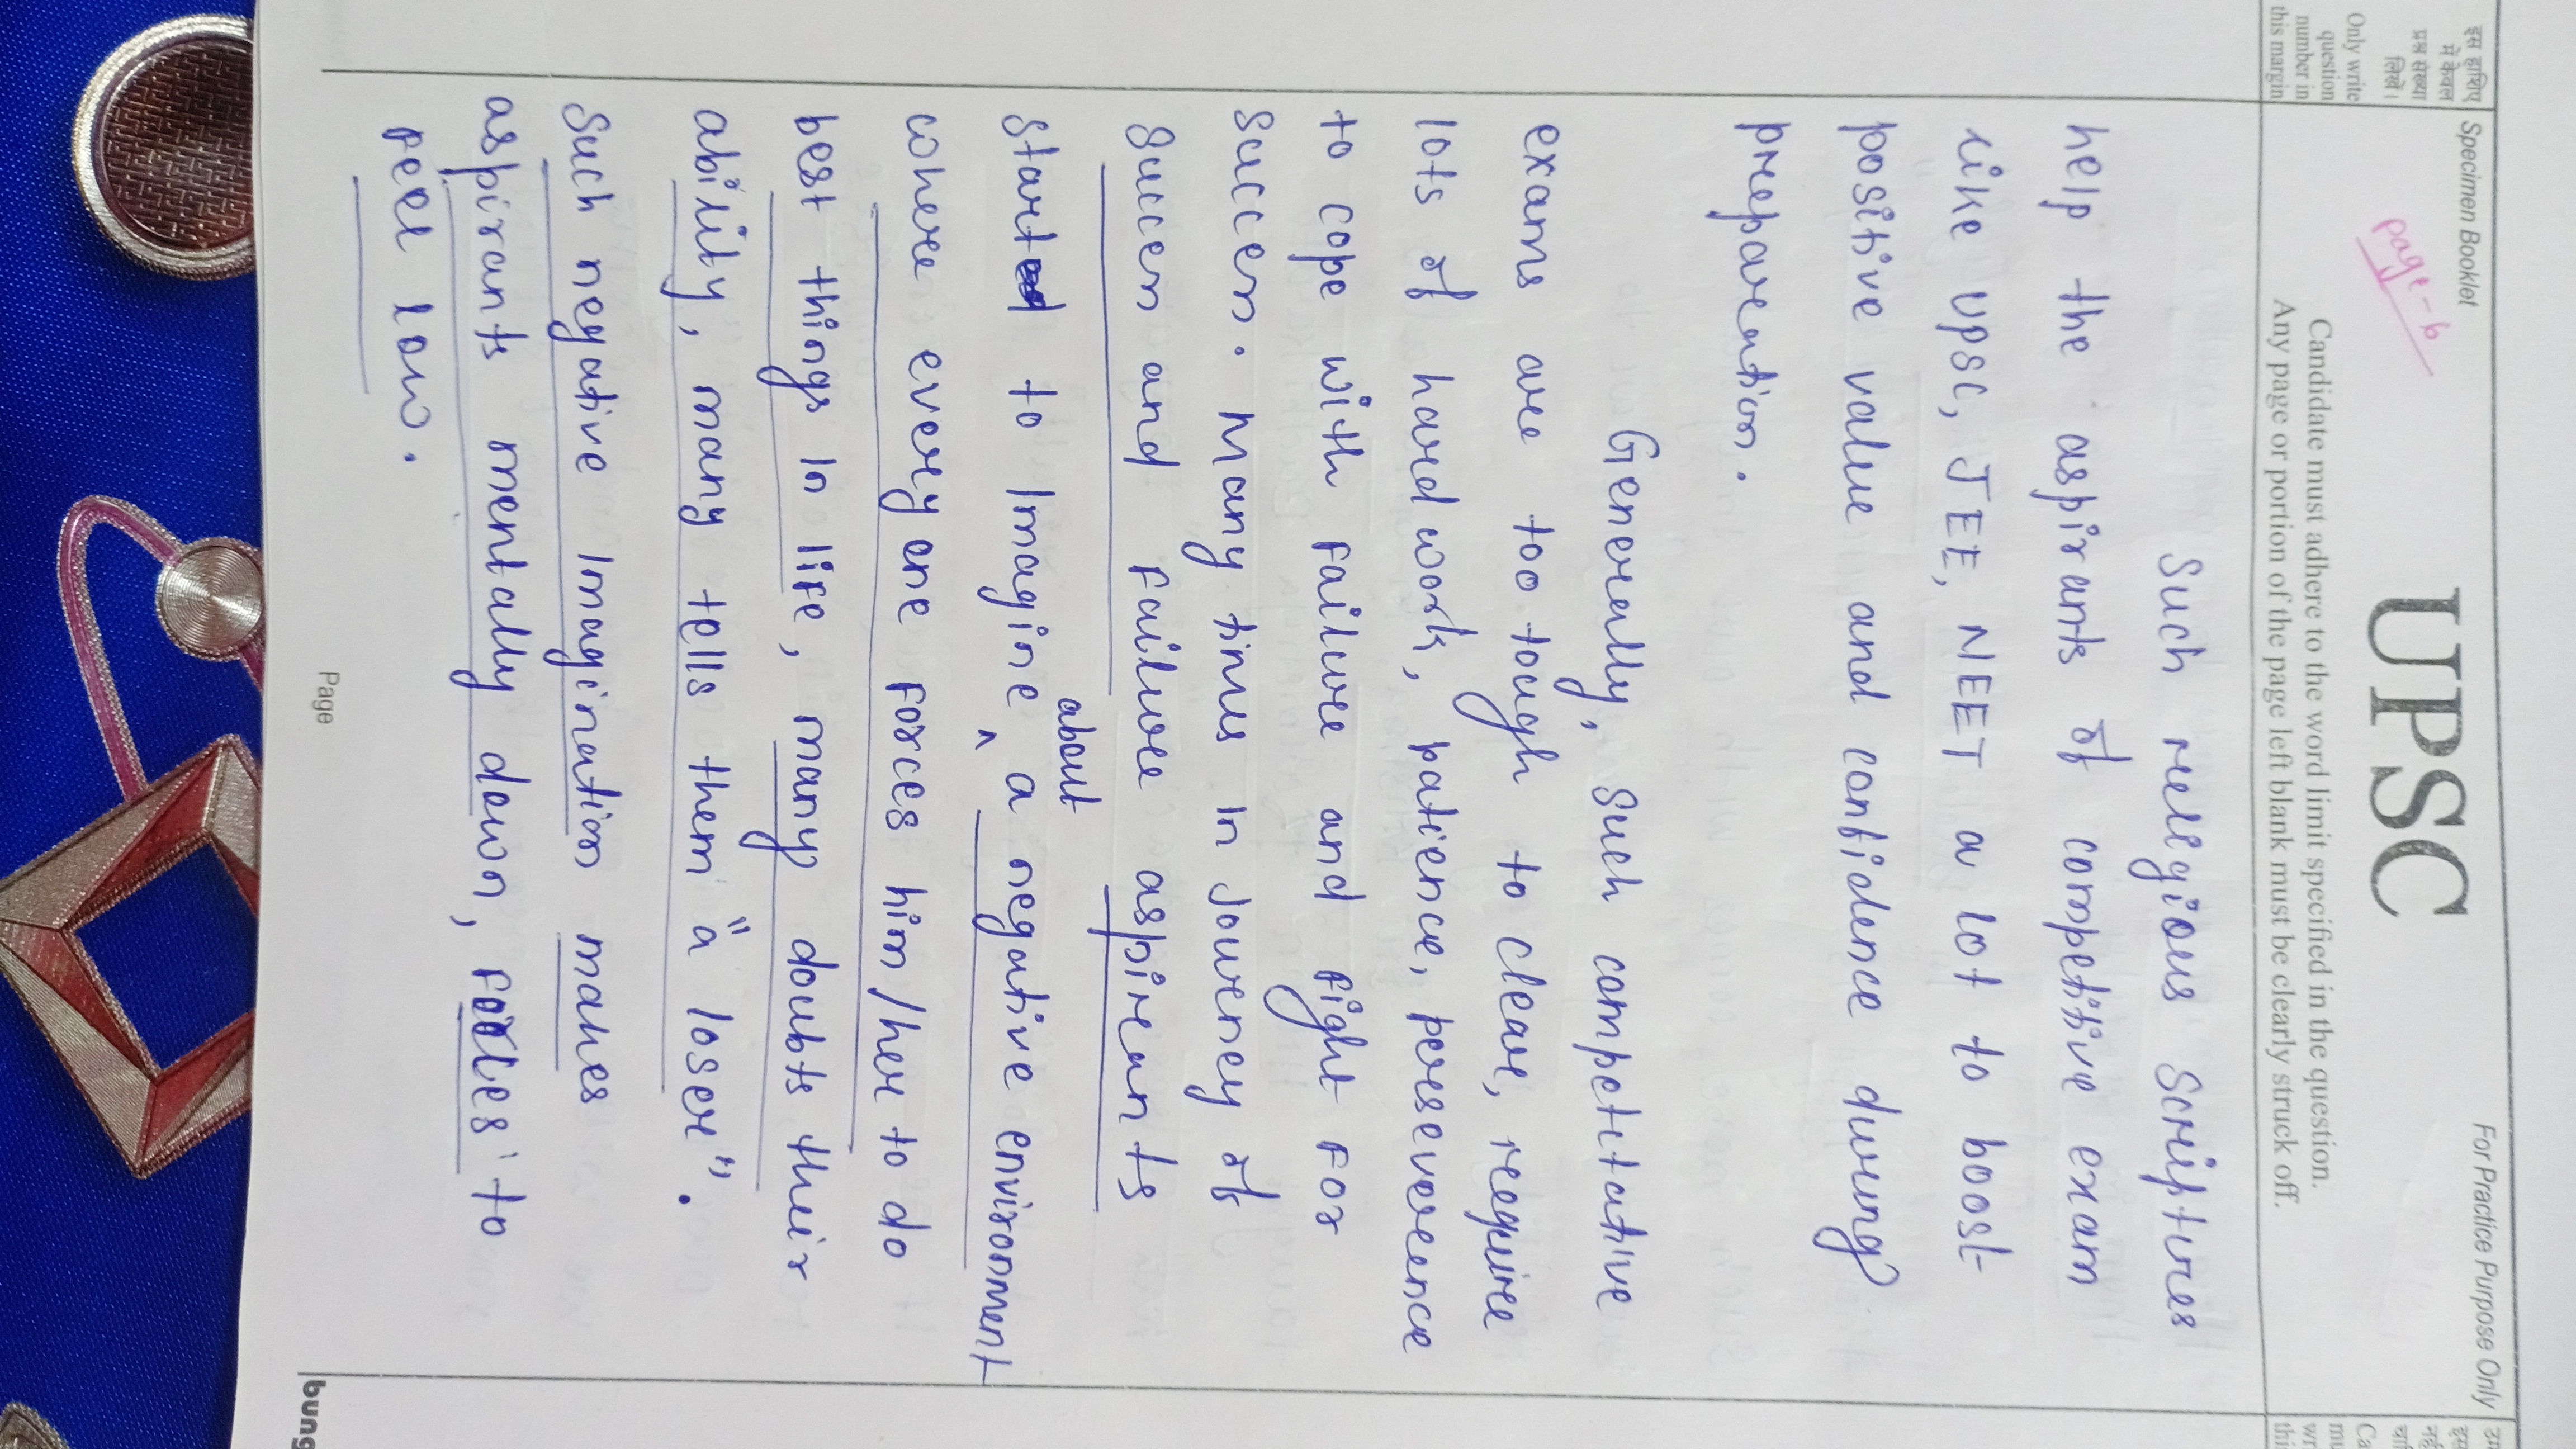 Specimen Booklet
For Practice Purpose Only
page-6
UPSC
इस हाशिए
में केवल
प्रश्न संख्या
लिखें।
Only write
question
number in
this margin
Candidate must adhere to the word limit specified in the question.
Any page or portion of the page left blank must be clearly struck off.
Such religious Scriptures
help the aspirants of competitive exam
like UPSC, JEE, NEET a lot to boost
positive value and confidence during
preparation.
Generally, Such competitative
exams are too tough to clear, require
lots of hard work, patience, perseverence
to cope with failure and fight for
success. Many times in Journey of
Success and Failure aspirants
start to Imagine about a negative environment
where everyone forces him/her to do
best things in life, many doubts their
ability, many tells them "a loser".
Such negative Imagination makes
aspirants mentally down, to
feel low.
Page